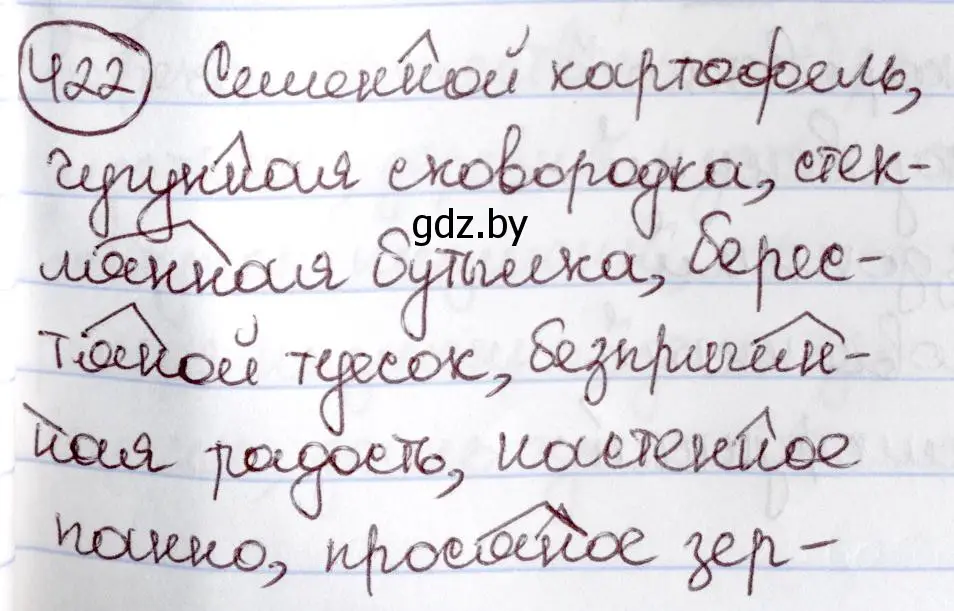 422 Семенной картофель,
чугунная сковородка, стек-
gdz.by
лянная бутылка, берес-
тяной туесок, безпричин-
ная радость, настенное
панно, просяное зер-